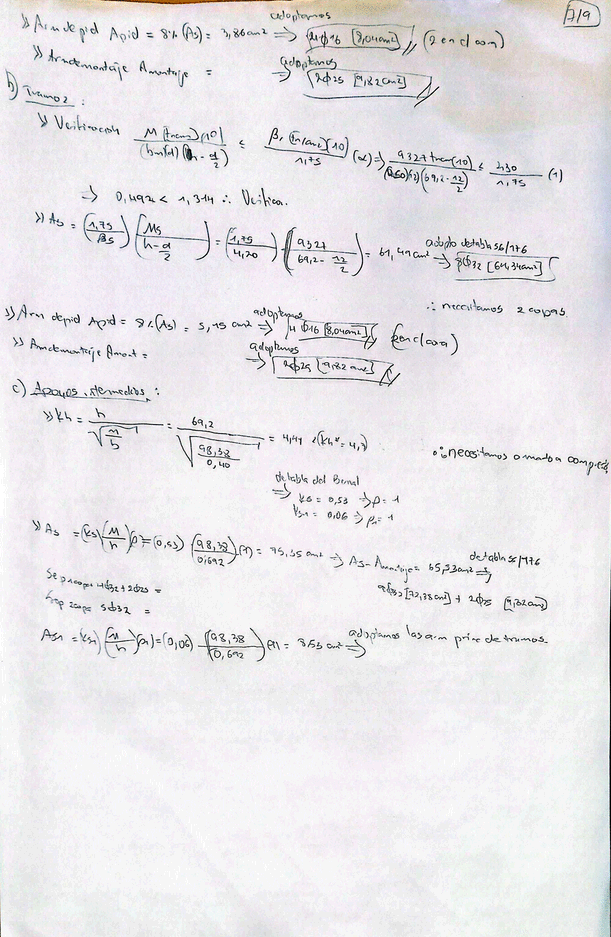 7/9
>> Arm de piel Apiel = 8%(As) = 3,86cm² => adoptamos 4φ16 [8,04cm²] (2 en c/cara)
>> Arm de montaje Amontaje = => adoptamos 2φ25 [9,82cm²]
b) Tramo 2 :
>> Verificación M (10) / (b)(d)(h - d/2) ≤ βr (10) / 1,75 (α) => 9327 (10) / (12)(69,2 - 12/2) ≤ 230 / 1,75 (1)
=> 0,492 < 1,314 ∴ Verifica.
>> As = (1,75 / βs) (Ms / h - d/2) = (1,75 / 4,20) (9327 / 69,2 - 12/2) = 61,49cm² => adopto de tabla 56/176 8φ32 [64,34cm²]
∴ necesitamos 2 capas
>> Arm de piel Apiel = 8%(As) = 5,15 cm² => adoptamos 4φ16 [8,04cm²] (2 en c/cara)
>> Arm de montaje Amont = => adoptamos 2φ25 [9,82 cm²]
c) Apoyos intermedios :
>> kh = h / √(M/b) = 69,2 / √(98,38 / 0,40) = 4,41 < (kh* = 4,7) ∴ necesitamos armad a compres.
de tabla del Bernal
=> ks = 0,53 => ρ = 1
ks1 = 0,06 => ρ1 = 1
>> As = (ks) (M/h) (ρ) = (0,53) (98,38 / 0,692) (1) = 75,35cm² => As - Amontaje = 65,53cm² => de tabla 56/176
9φ32 [72,38cm²] + 2φ25 [9,82cm²]
Sep 1 capa 4φ32 + 2φ25 =
Sep 2 capa 5φ32 =
As1 = (ks1) (M/h) (ρ1) = (0,06) (98,38 / 0,692) (1) = 8,53 cm² => adoptamos las arm princ de tramos.